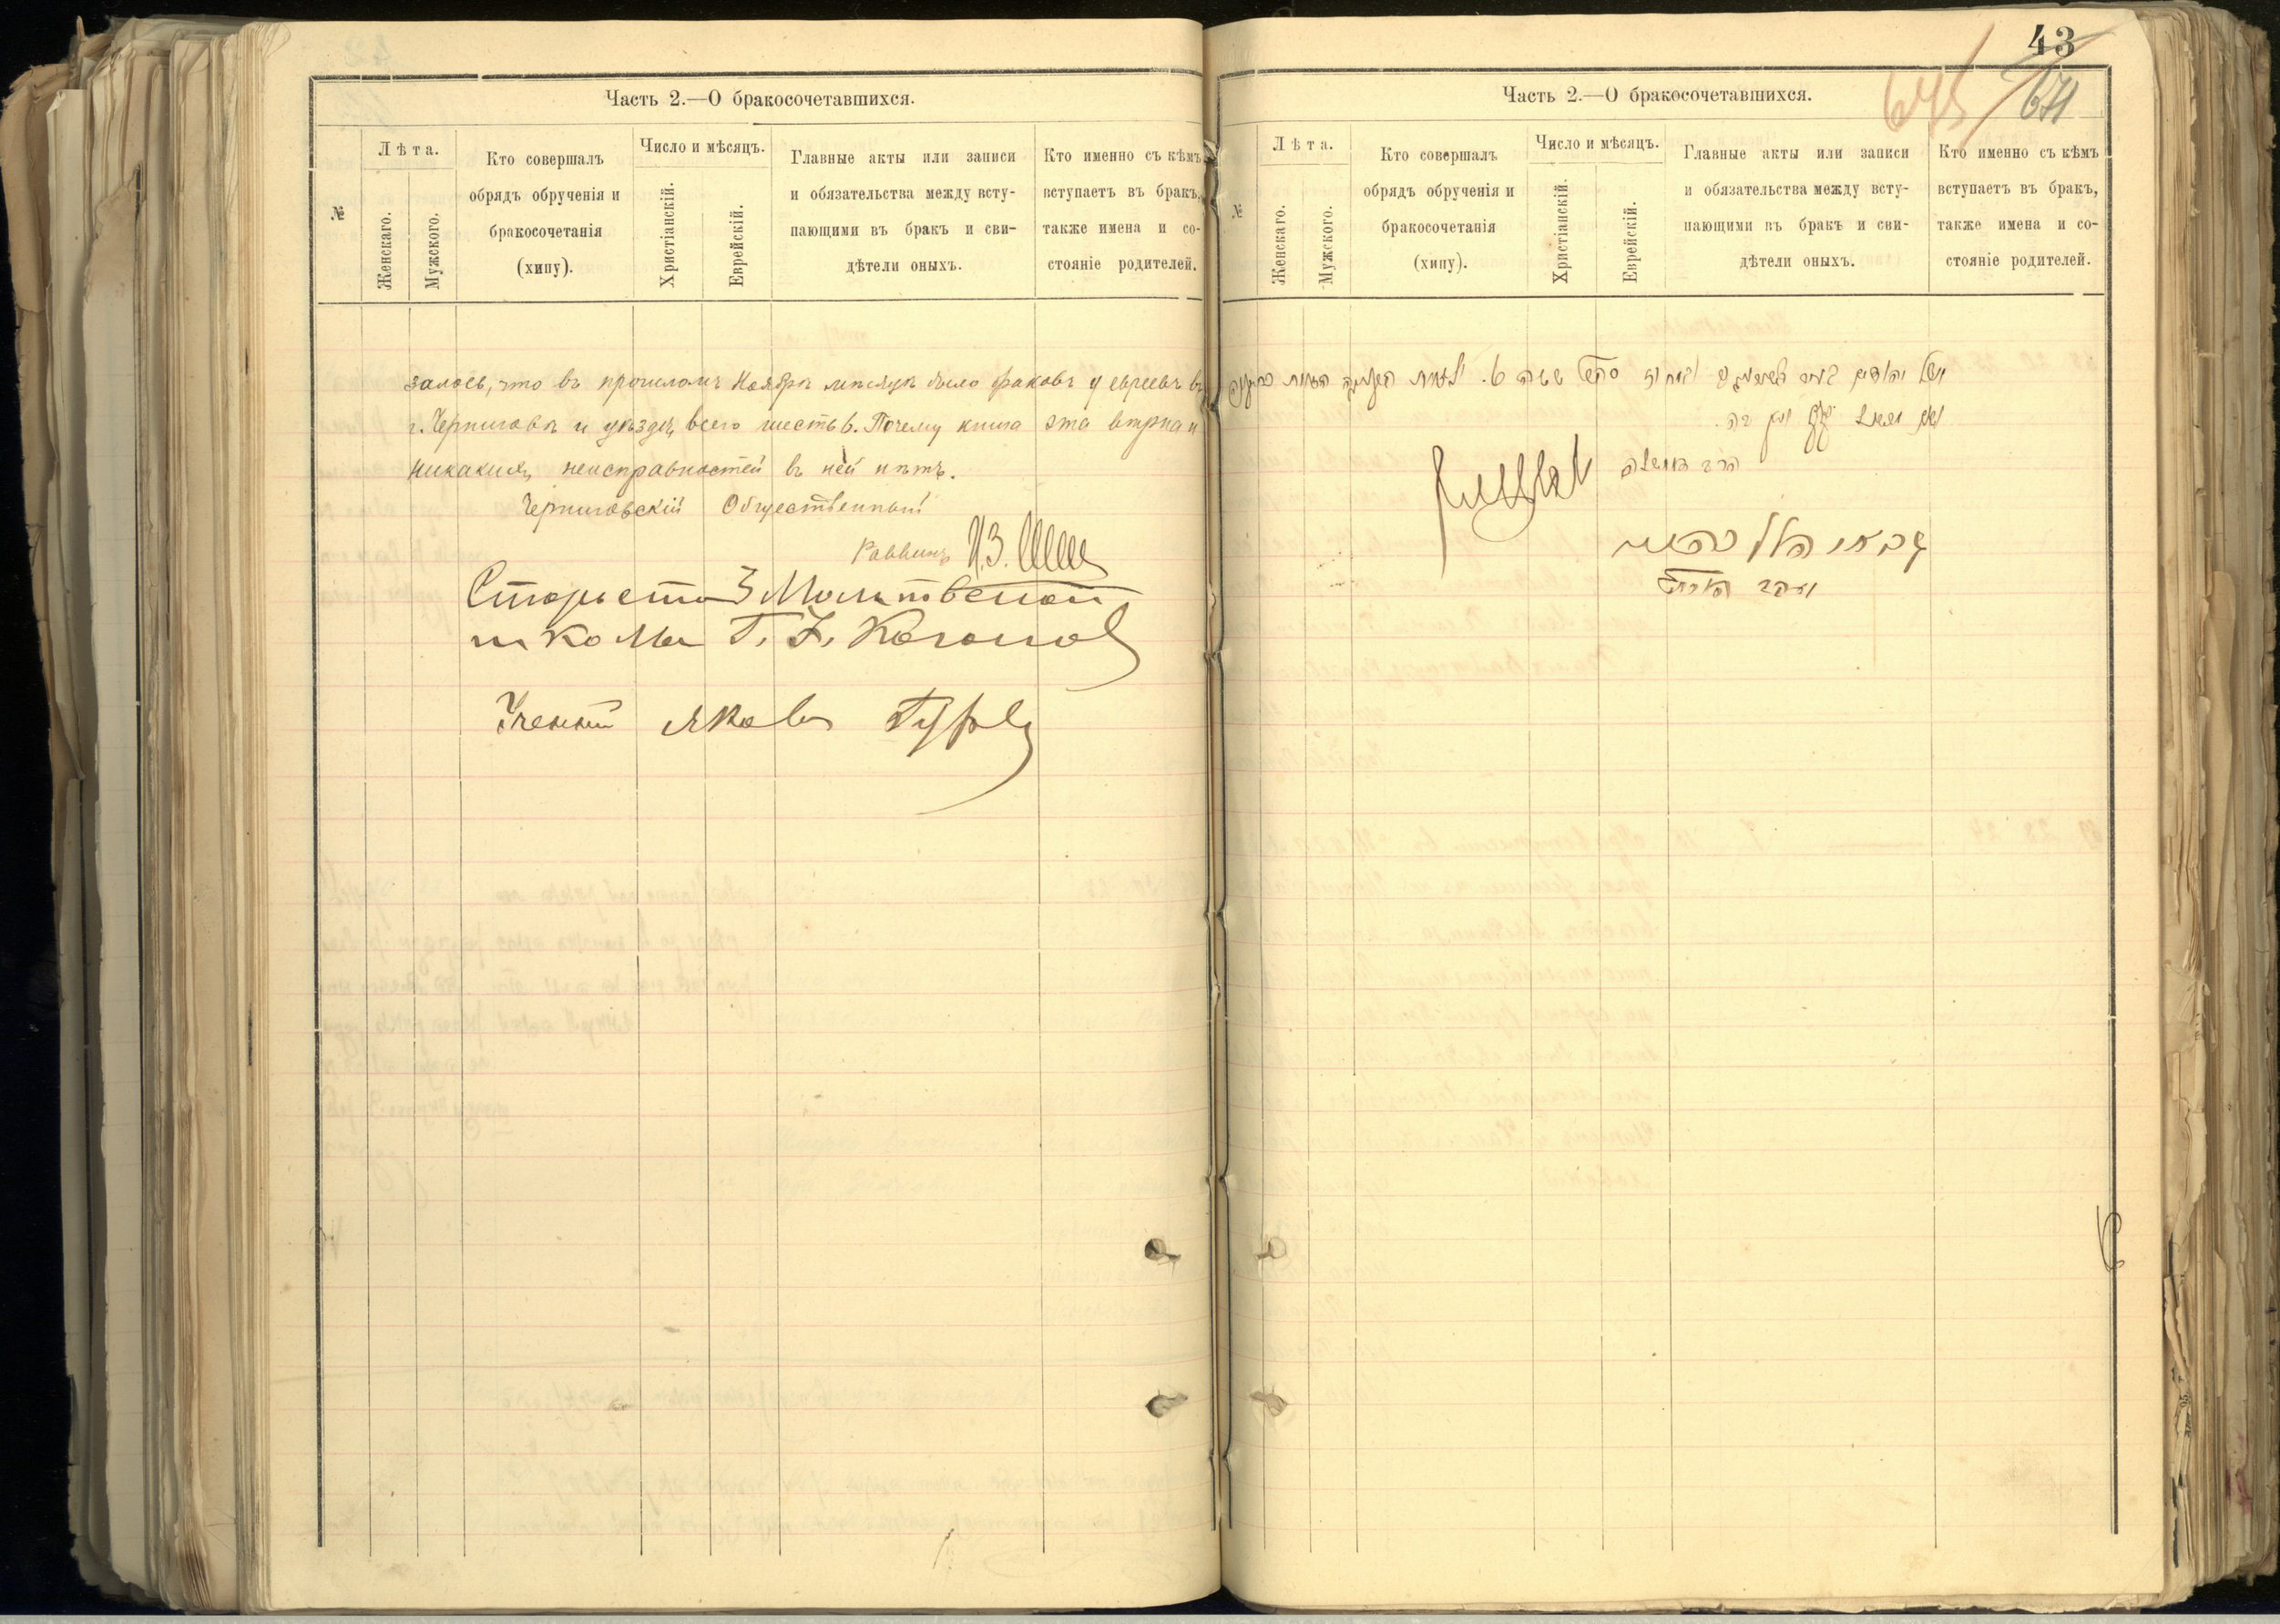 Часть 2.—О бракосочетавшихся.
№
Лѣта.
Женскаго.
Мужского.
Кто совершалъ
обрядъ обрученія и
бракосочетанія
(хипу).
Число и мѣсяцъ.
Христіанскій.
Еврейскій.
Главные акты или записи
и обязательства между всту-
пающими въ бракъ и сви-
дѣтели оныхъ.
Кто именно съ кѣмъ
вступаетъ въ бракъ,
также имена и со-
стояніе родителей.
залось, что въ прошломъ Ноябрѣ мѣсяцѣ было браковъ у евреевъ въ
г. Черниговѣ и уѣздѣ, всего шесть 6. Почему книга эта вѣрна и
никакихъ неисправностей въ ней нѣтъ.
Черниговскій Общественный
Раввинъ
Староста 3 Молитвенной
школы Г. З. Каганов
Ученый Яков Гурев
43
645
671
Часть 2.—О бракосочетавшихся.
№
Лѣта.
Женскаго.
Мужского.
Кто совершалъ
обрядъ обрученія и
бракосочетанія
(хипу).
Число и мѣсяцъ.
Христіанскій.
Еврейскій.
Главные акты или записи
и обязательства между всту-
пающими въ бракъ и сви-
дѣтели оныхъ.
Кто именно съ кѣмъ
вступаетъ въ бракъ,
также имена и со-
стояніе родителей.